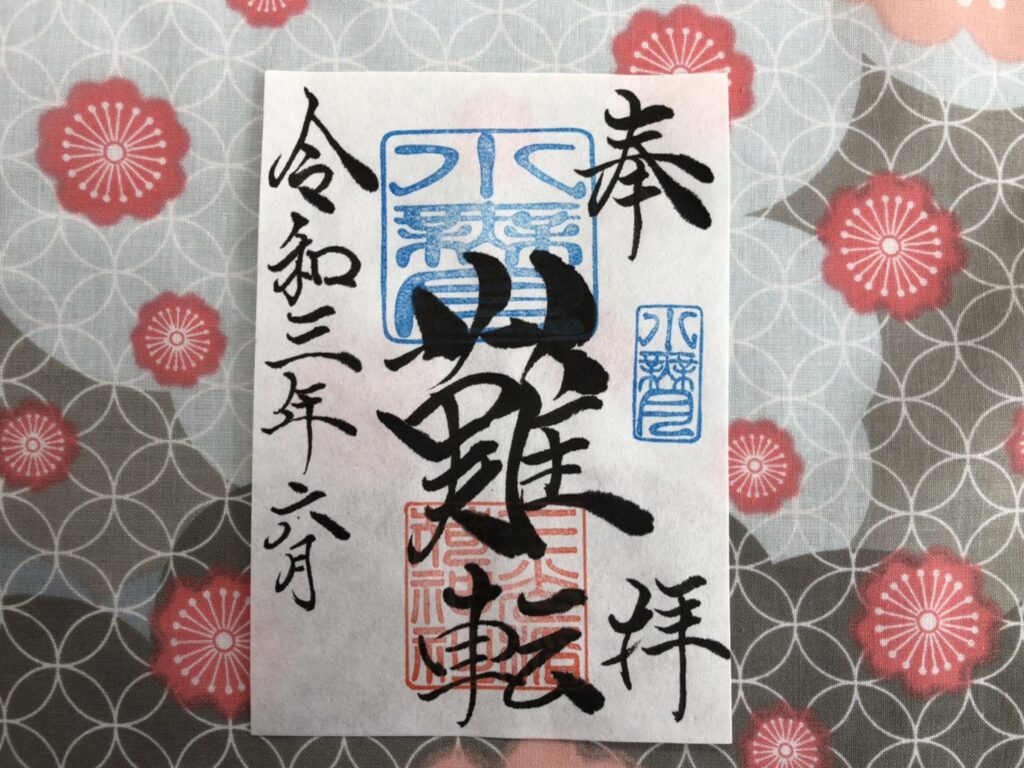 奉拝
水無月
水無月
難転
令和三年六月